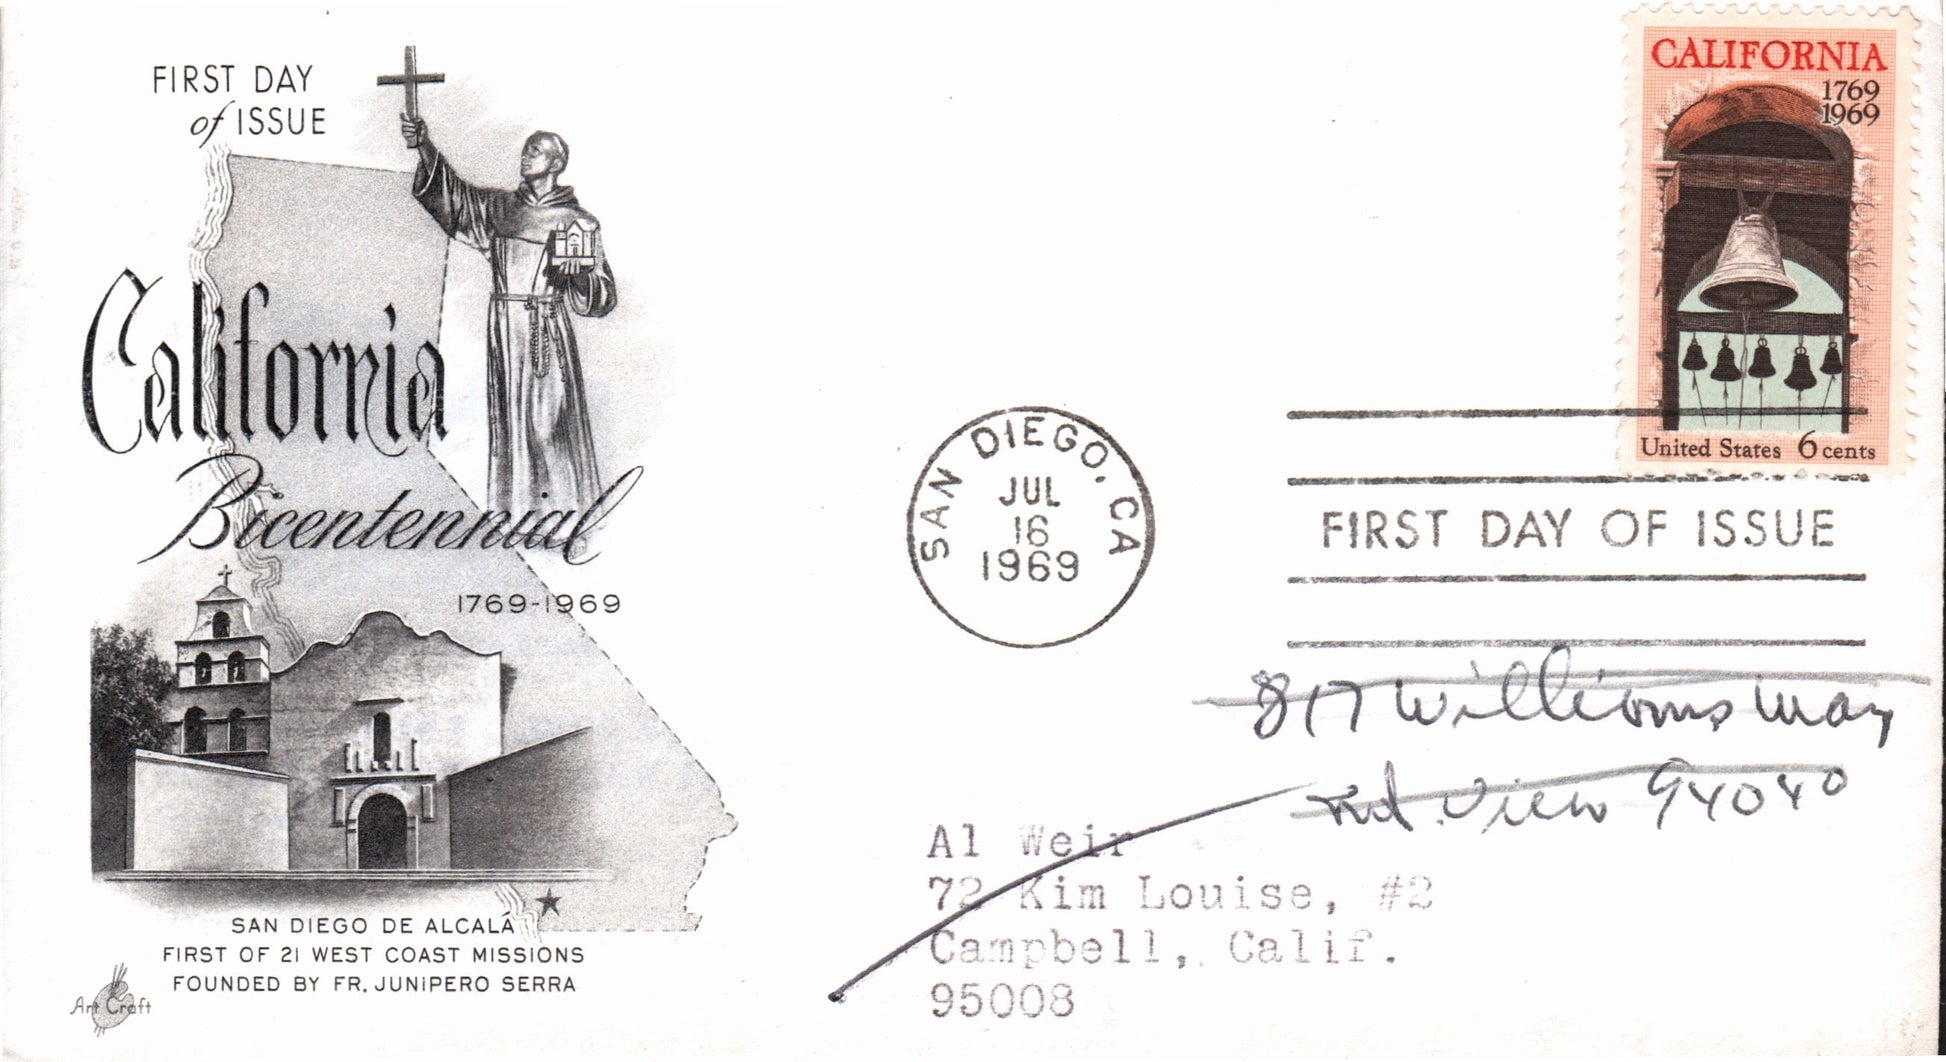 FIRST DAY
of ISSUE
California
Bicentennial
1769-1969
SAN DIEGO DE ALCALÁ
FIRST OF 21 WEST COAST MISSIONS
FOUNDED BY FR. JUNIPERO SERRA
Art Craft
CALIFORNIA
1769
1969
United States 6 cents
SAN DIEGO, CA
JUL
16
1969
FIRST DAY OF ISSUE
817 Williams Way
View 94040
Al Weir
72 Kim Louise, #2
Campbell, Calif.
95008